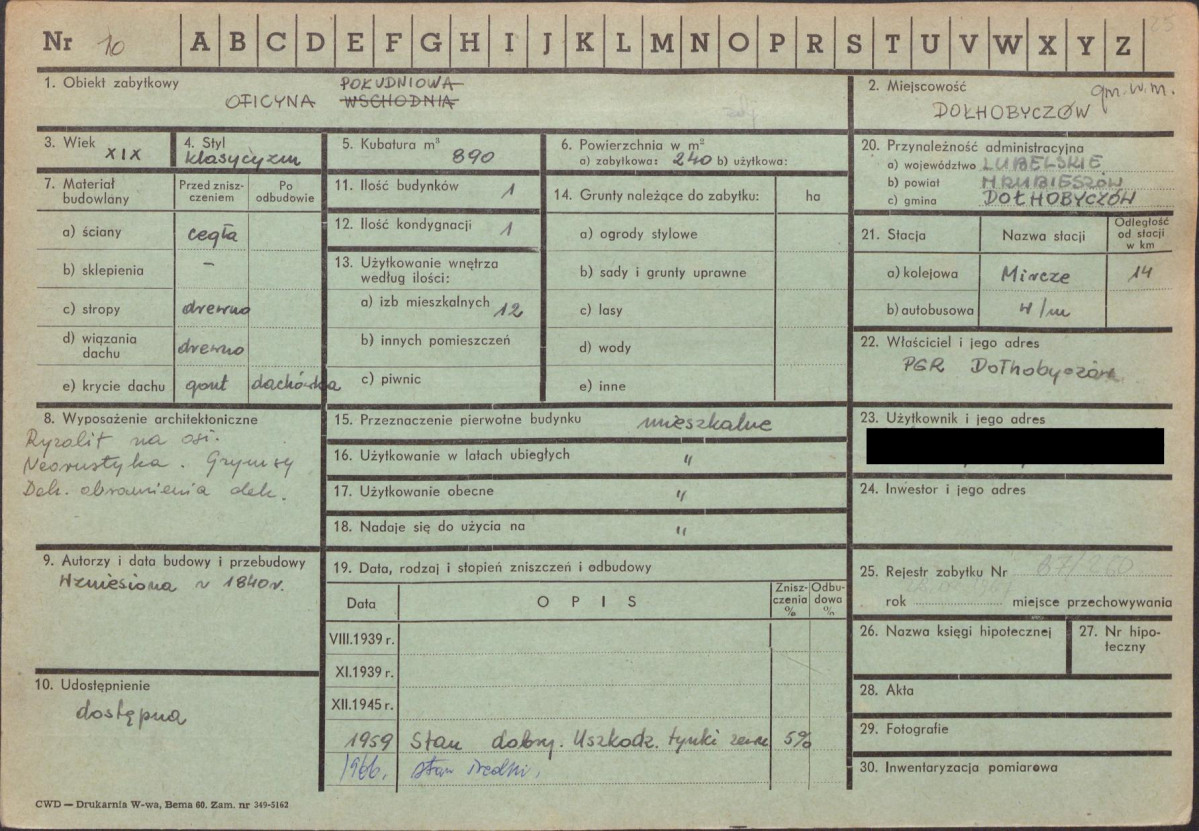 Nr 10 A B C D E F G H I J K L M N O P R S T U V W X Y Z 25
1. Obiekt zabytkowy
POŁUDNIOWA
OFICYNA WSCHODNIA
2. Miejscowość gm. w. m.
DOŁHOBYCZÓW
3. Wiek XIX
4. Styl klasycyzm
5. Kubatura m³ 890
6. Powierzchnia w m²
a) zabytkowa: 240 b) użytkowa:
20. Przynależność administracyjna
a) województwo LUBELSKIE
b) powiat HRUBIESZÓW
c) gmina DOŁHOBYCZÓW
7. Materiał budowlany
Przed znisz-
czeniem
Po
odbudowie
a) ściany cegła
b) sklepienia –
c) stropy drewno
d) wiązania
dachu drewno
e) krycie dachu gont dachówka
11. Ilość budynków 1
12. Ilość kondygnacji 1
13. Użytkowanie wnętrza
według ilości:
a) izb mieszkalnych 12
b) innych pomieszczeń
c) piwnic
14. Grunty należące do zabytku: ha
a) ogrody stylowe
b) sady i grunty uprawne
c) lasy
d) wody
e) inne
21. Stacja Nazwa stacji
Odległość
od stacji
w km
a) kolejowa Mircze 14
b) autobusowa w/m
22. Właściciel i jego adres
PGR Dołhobyczów
8. Wyposażenie architektoniczne
Ryzalit na osi.
Neorustyka. Gzymsy
Dek. obramienia dek.
15. Przeznaczenie pierwotne budynku mieszkalne
16. Użytkowanie w latach ubiegłych "
17. Użytkowanie obecne "
18. Nadaje się do użycia na "
23. Użytkownik i jego adres
24. Inwestor i jego adres
9. Autorzy i data budowy i przebudowy
Wzniesiona w 1840 r.
10. Udostępnienie
dostępna
19. Data, rodzaj i stopień zniszczeń i odbudowy
Data OPIS
Znisz-
czenia
%
Odbu-
dowa
%
VIII.1939 r.
XI.1939 r.
XII.1945 r.
1959 Stan dobry. Uszkodz. tynki zewn 5%
1966. stan średni.
25. Rejestr zabytku Nr 67/260
rok miejsce przechowywania
26. Nazwa księgi hipotecznej
27. Nr hipo-
teczny
28. Akta
29. Fotografie
30. Inwentaryzacja pomiarowa
CWD — Drukarnia W-wa, Bema 60. Zam. nr 349-5162